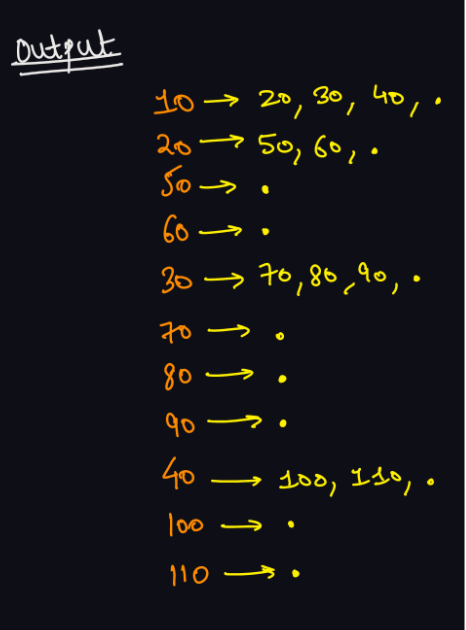 Output
10 → 20, 30, 40, .
20 → 50, 60, .
50 → .
60 → .
30 → 70, 80, 90, .
70 → .
80 → .
90 → .
40 → 100, 110, .
100 → .
110 → .